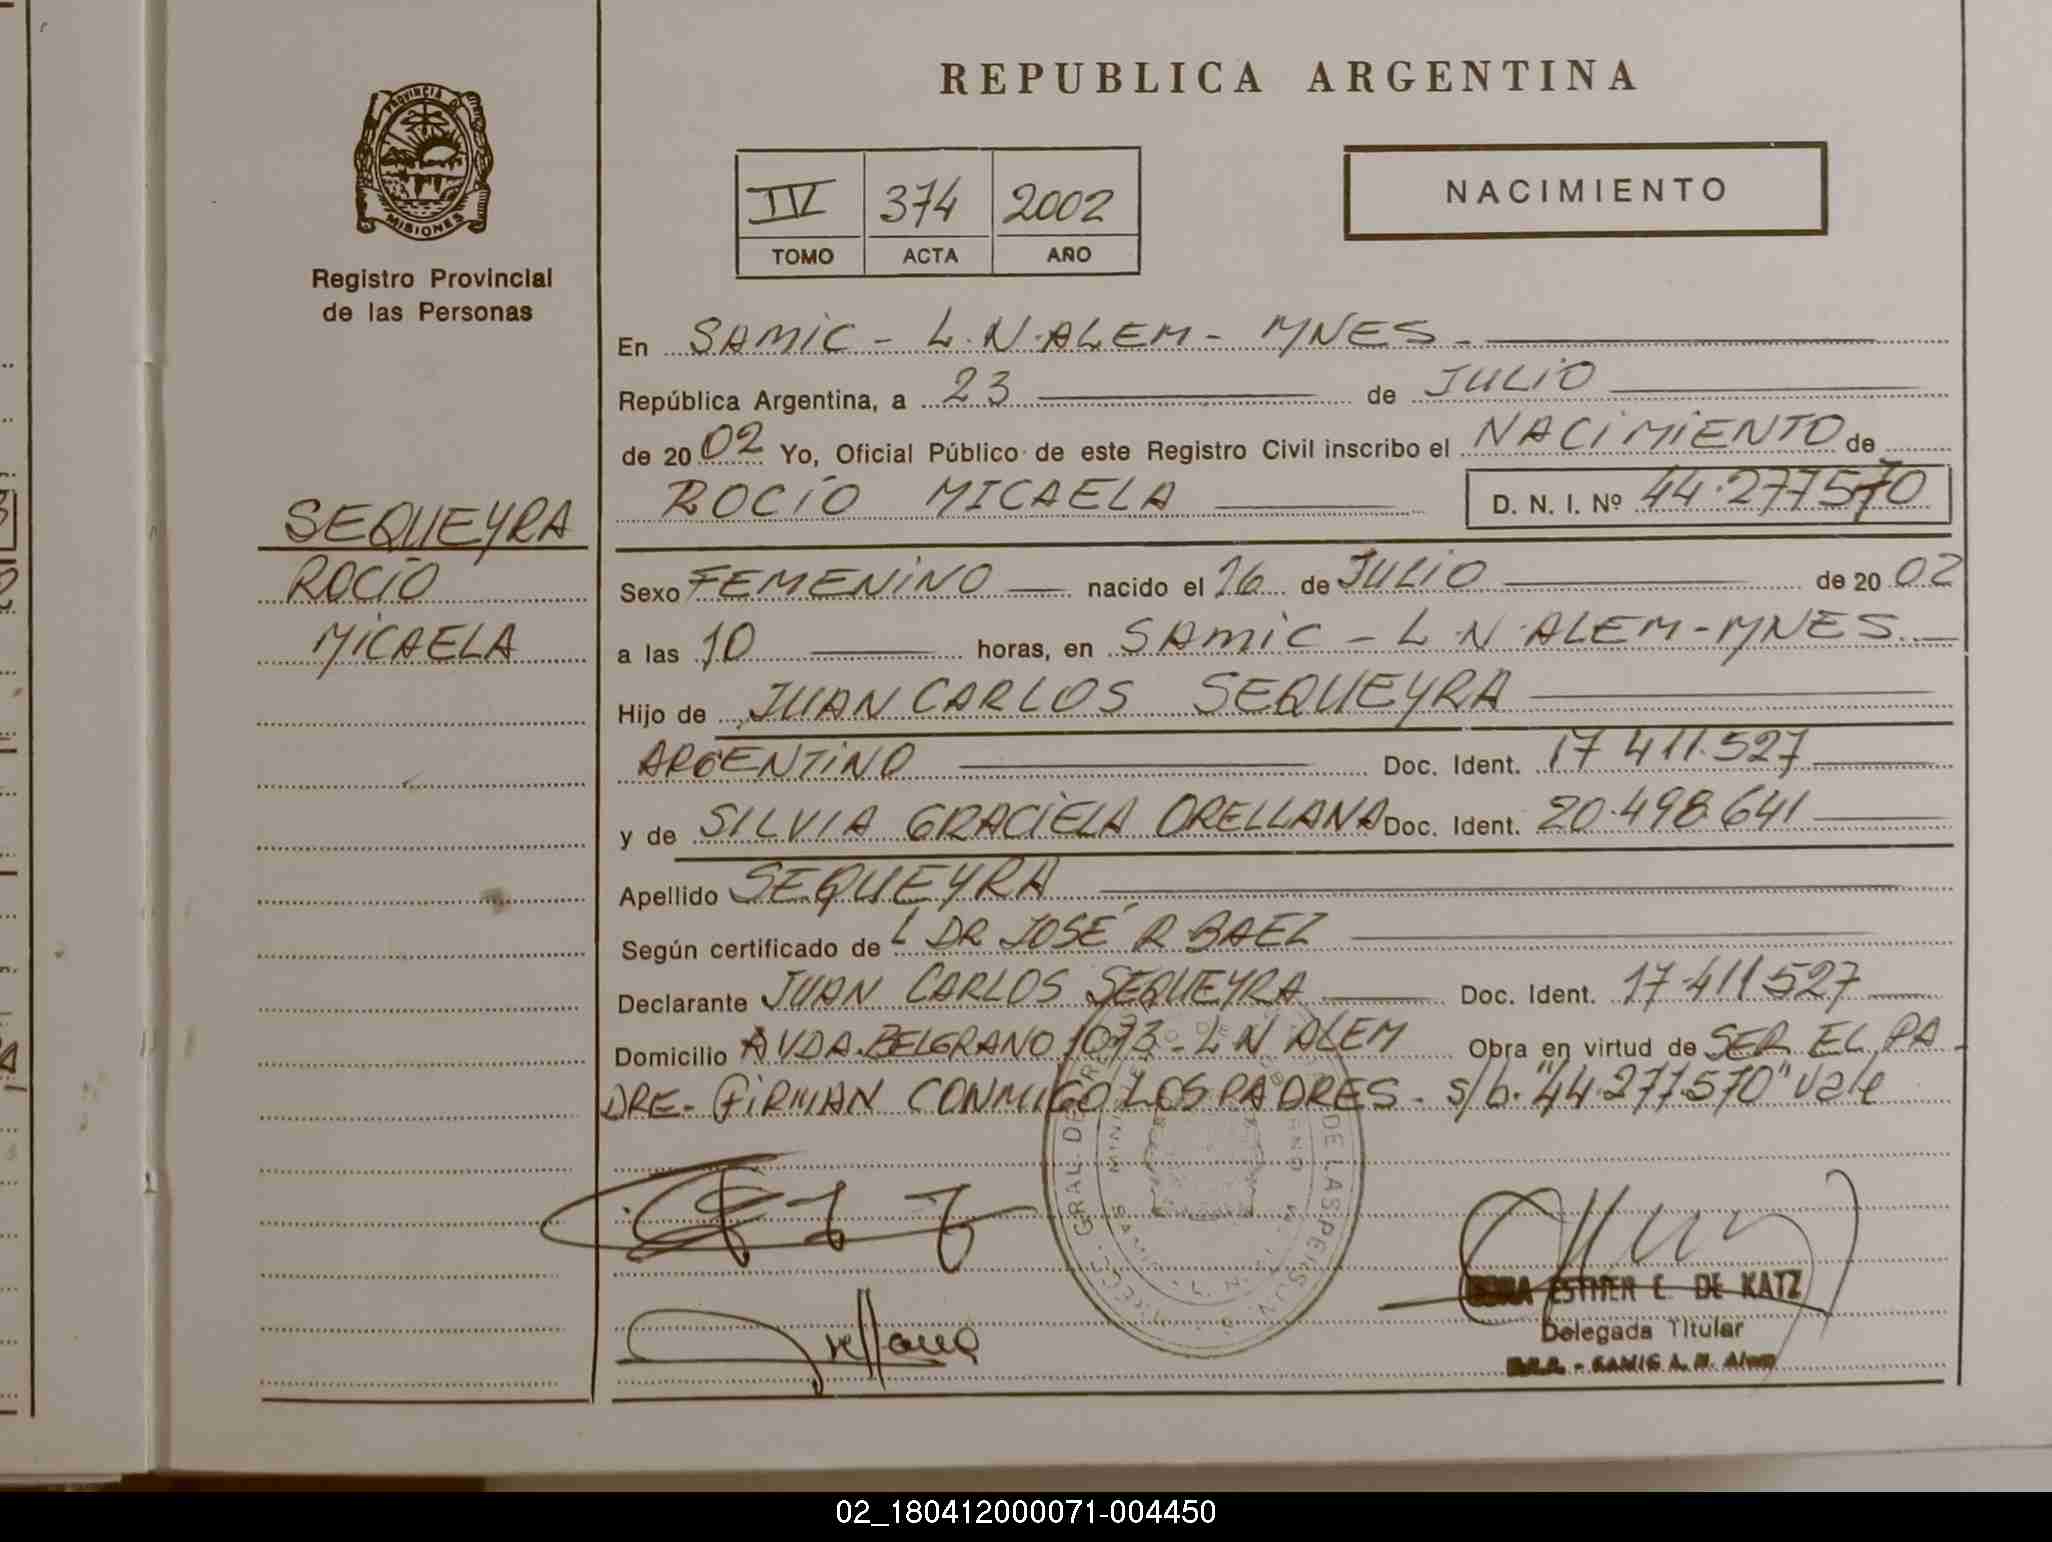 REPUBLICA ARGENTINA
PROVINCIA D
MISIONES
Registro Provincial
de las Personas
IV 374 2002
TOMO ACTA AÑO
NACIMIENTO
En SAMIC - L.N.ALEM - MNES -
República Argentina, a 23 de JULIO
de 2002 Yo, Oficial Público de este Registro Civil inscribo el NACIMIENTO de
ROCÍO MICAELA D. N. I. Nº 44.277570
SEQUEYRA
ROCÍO
MICAELA
Sexo FEMENINO nacido el 16 de JULIO de 2002
a las 10 horas, en SAMIC - L.N.ALEM - MNES.
Hijo de JUAN CARLOS SEQUEYRA
ARGENTINO Doc. Ident. 17 411.527
y de SILVIA GRACIELA ORELLANA Doc. Ident. 20.498.641
Apellido SEQUEYRA
Según certificado de DR JOSÉ R BAEZ
Declarante JUAN CARLOS SEQUEYRA Doc. Ident. 17.411527
Domicilio AVDA.BELGRANO 1073 - L N ALEM Obra en virtud de SER EL PA-
DRE - FIRMAN CONMIGO LOS PADRES - s/b. "44.277.570" vale
GRAL. DE LAS PERSON
Orellana
ESTHER E. DE KATZ
Delegada Titular
SAMIC L. N. Alem
02_180412000071-004450